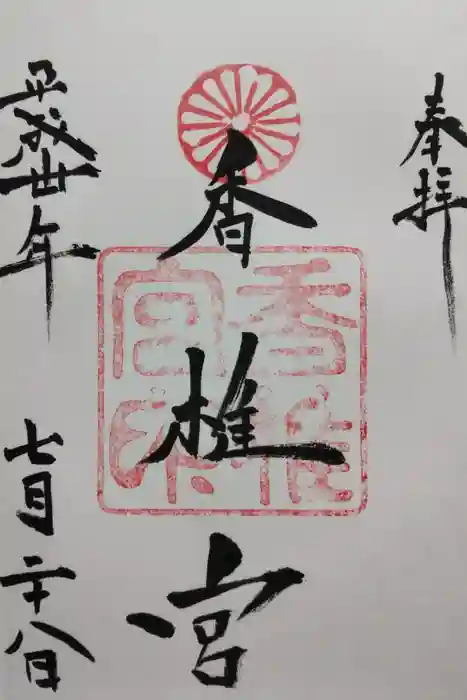 奉拝
香椎宮
香椎宮印
平成卅年
七月二十八日